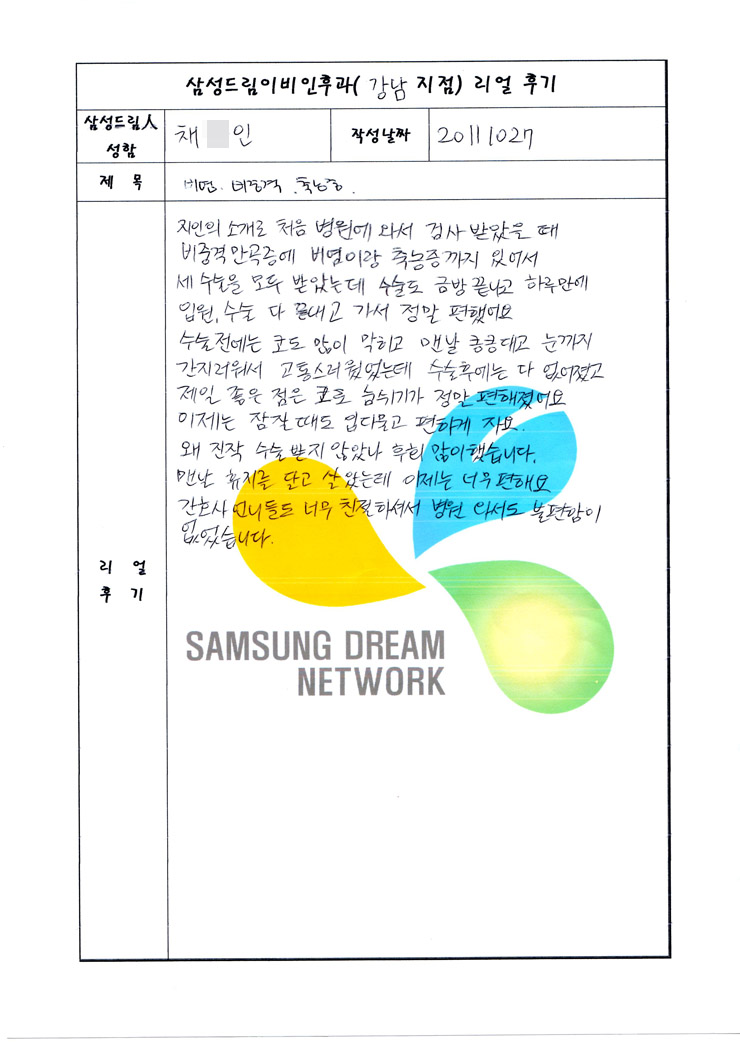 삼성드림이비인후과( 강남 지점) 리얼 후기
삼성드림人 성함
채 인
작성날짜
20111027
제 목
비염. 비중격. 축농증.
리 얼 후 기
지인의 소개로 처음 병원에 와서 검사 받았을 때
비중격만곡증에 비염이랑 축농증까지 있어서
세 수술을 모두 받았는데 수술도 금방 끝나고 하루만에
입원, 수술 다 끝내고 가서 정말 편했어요
수술전에는 코도 많이 막히고 맨날 킁킁대고 눈까지
간지러워서 고통스러웠었는데 수술후에는 다 없어졌고
제일 좋은 점은 코로 숨쉬기가 정말 편해졌어요
이제는 잠잘 때도 입다물고 편하게 자요.
왜 진작 수술 받지 않았나 후회 많이했습니다.
맨날 휴지를 달고 살았는데 이제는 너무 편해요
간호사 언니들도 너무 친절하셔서 병원 와서도 불편함이
없었습니다.
SAMSUNG DREAM
NETWORK